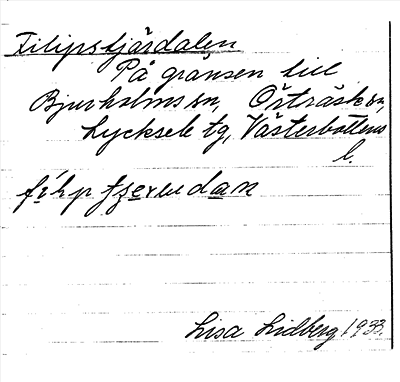 Filipstjärdalen
På gränsen till
Bjurholms sn, Örträsk sn,
Lycksele tg, Västerbottens
l.
Lisa Lidberg 1933.